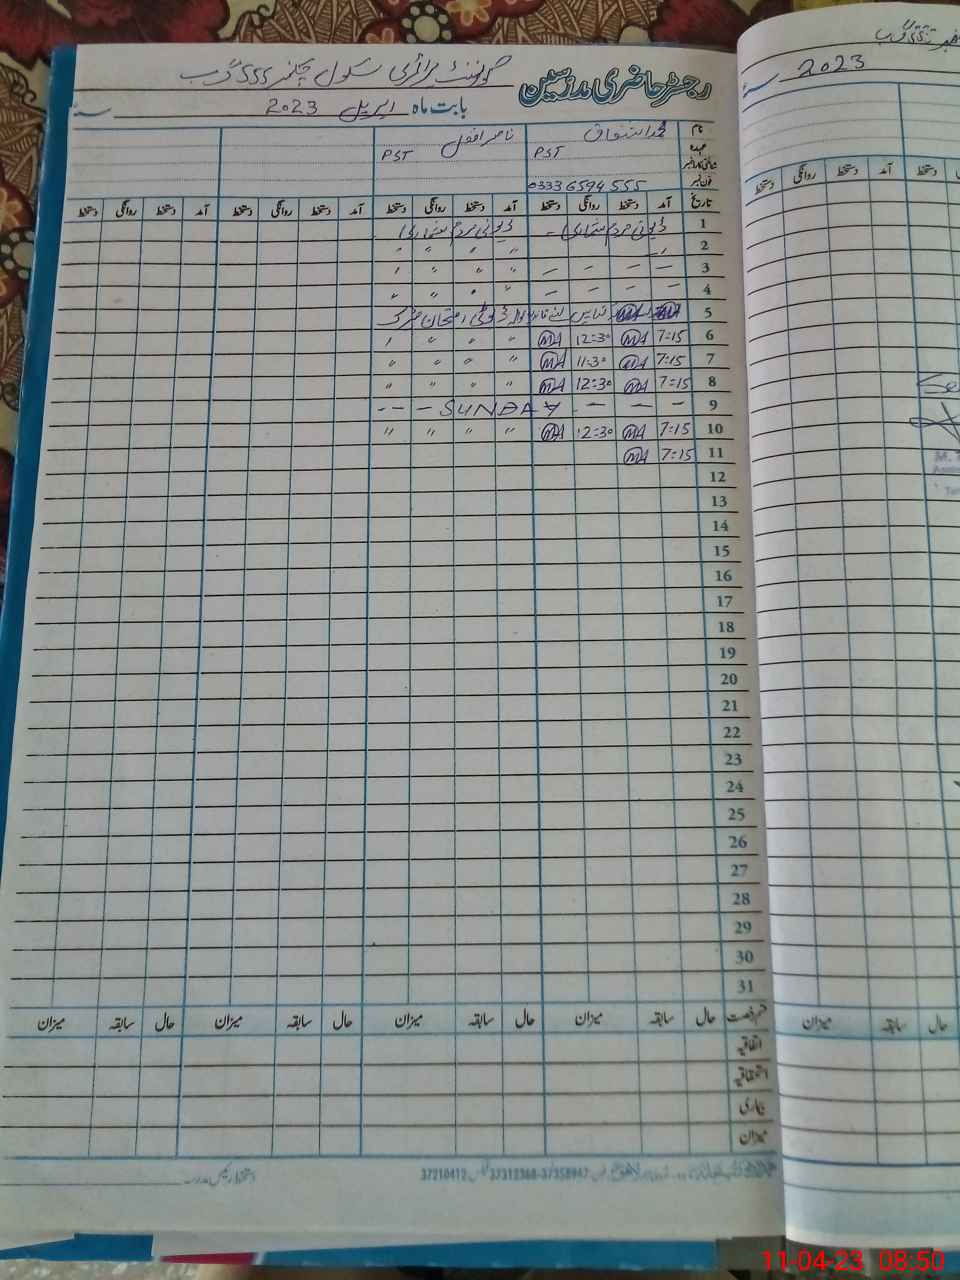 رجسٹر حاضری مدرسین گورنمنٹ پرائمری سکول چکنمبر 555 گ ب
بابت ماہ اپریل 2023 سنہ
نام محمد اشفاق ناصر افضل
عہدہ PST PST
فون نمبر 03336594555
تاریخ آمد دستخط روانگی دستخط آمد دستخط روانگی دستخط آمد دستخط روانگی دستخط آمد دستخط روانگی دستخط
1 ڈیوٹی مردم شماری - ڈیوٹی مردم شماری
2 " " " " "
3 – – – – " " "
4 – – – – " " "
5 ڈیوٹی امتحان میٹرک
6 7:15 MA 12:30 MA " " " "
7 7:15 MA 11:30 MA " " " "
8 7:15 MA 12:30 MA " " " "
9 – – – SUNDAY – – –
10 7:15 MA 12:30 MA " " " "
11 7:15 MA
12
13
14
15
16
17
18
19
20
21
22
23
24
25
26
27
28
29
30
31
حال سابقہ میزان حال سابقہ میزان حال سابقہ میزان حال سابقہ میزان
اتفاقیہ
استحقاقیہ
بیماری
میزان
37210412 37312368-37358947
2023 سنہ
آمد دستخط روانگی دستخط
حال سابقہ میزان
11-04-23 08:50